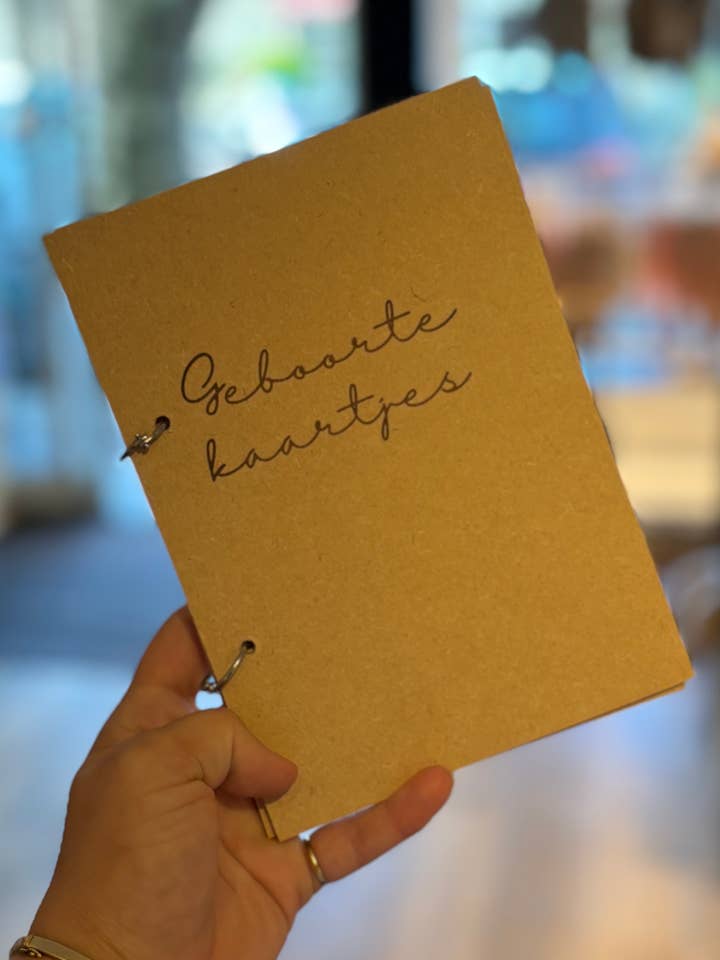 Geboorte
kaartjes